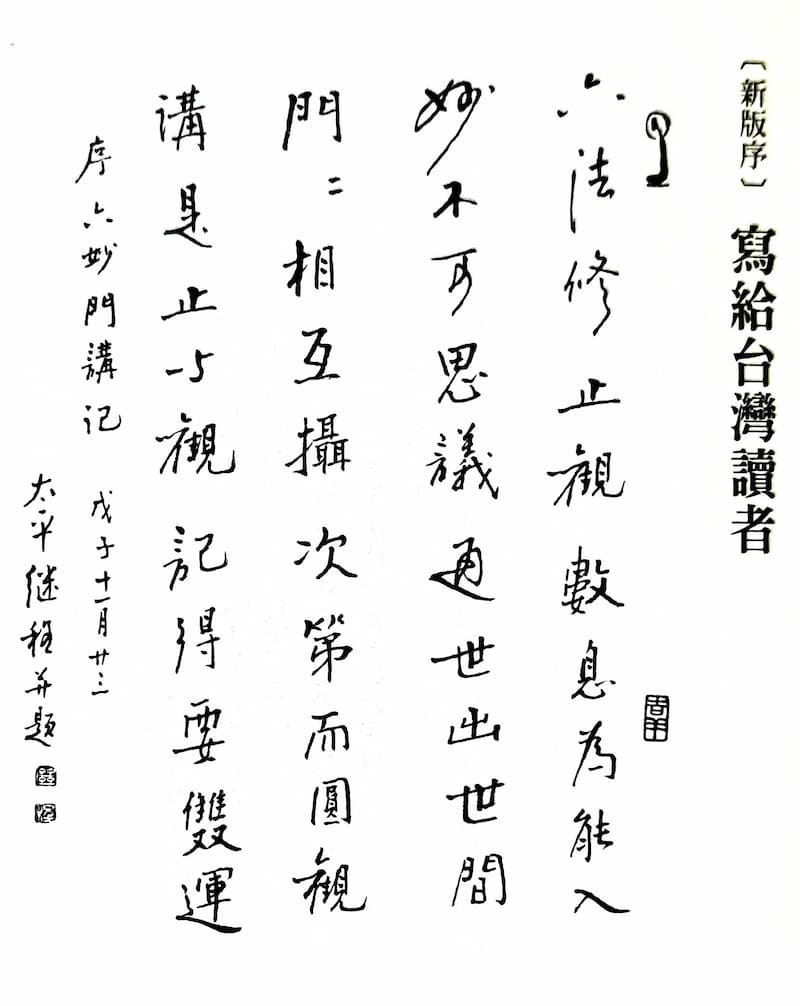 〔新版序〕 寫給台灣讀者
六法修止觀數息為能入
妙不可思議通世出世間
門〻相互攝次第而圓觀
講是止与觀記得要雙運
序六妙門講记 戊子十一月廿三
太平继程并题